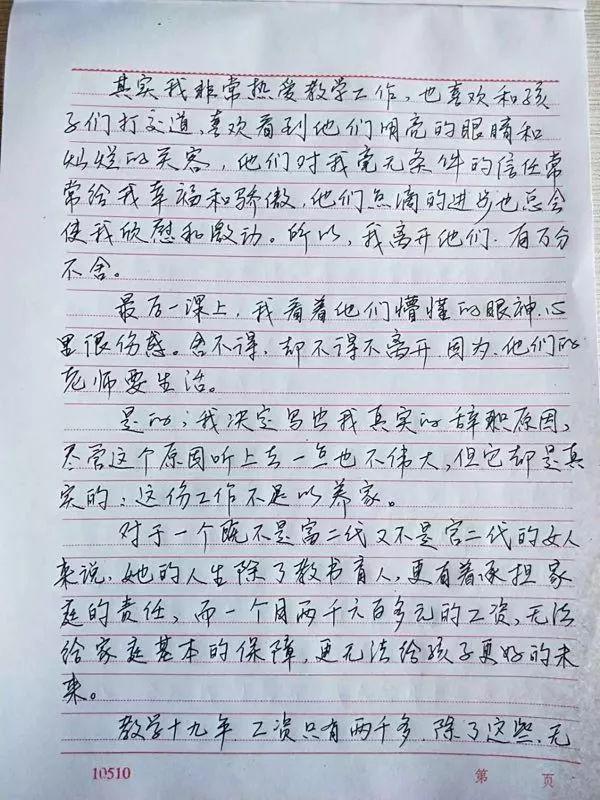 其实我非常热爱教学工作，也喜欢和孩
子们打交道，喜欢看到他们明亮的眼睛和
灿烂的笑容，他们对我毫无条件的信任常
常给我幸福和骄傲，他们点滴的进步也总会
使我欣慰和激动。所以，我离开他们．有万分
不舍。
最后一课上，我看着他们懵懂的眼神，心
里很伤感。舍不得，却不得不离开 因为，他们的
老师要生活。
是的；我决定写出我真实的辞职原因，
尽管这个原因听上去一点也不伟大，但它却是真
实的：这份工作不足以养家。
对于一个既不是富二代又不是官二代的女人
来说，她的人生除了教书育人，更有着承担家
庭的责任，而一个月两千六百多元的工资，无法
给家庭基本的保障，更无法给孩子更好的未
来。
教学十九年 工资只有两千多．除了这些，无
10510 第 页